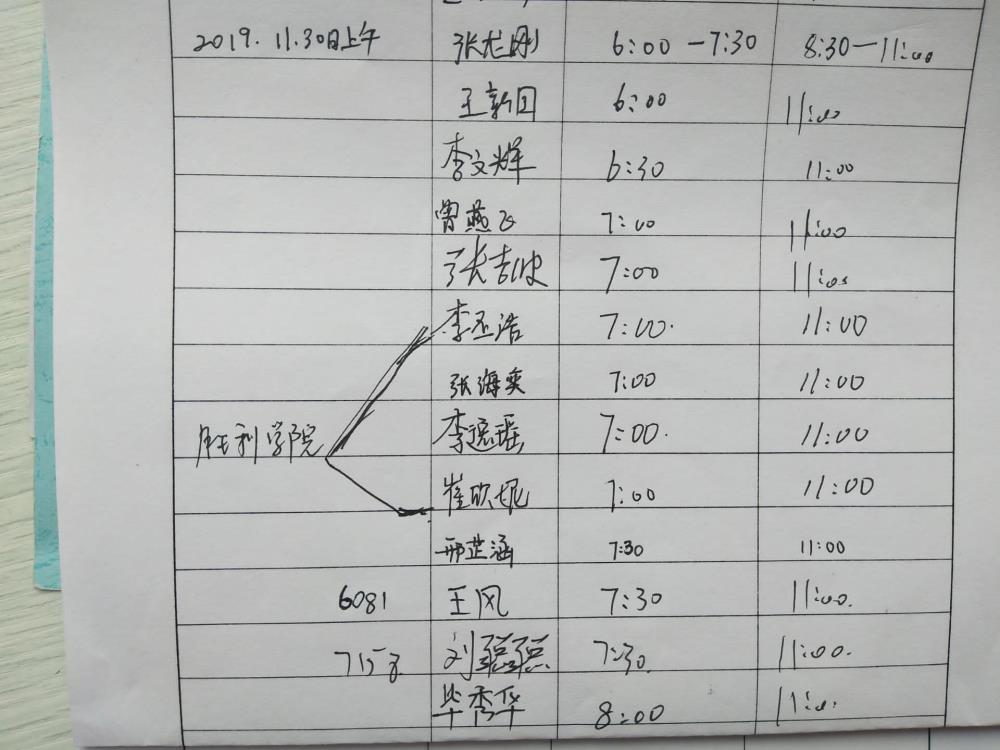 2019.11.30日上午 张龙刚 6:00-7:30 8:30-11:00
王新国 6:00 11:00
李文辉 6:30 11:00
曾燕飞 7:00 11:00
张吉波 7:00 11:00
李丕浩 7:00. 11:00
张海英 7:00 11:00
胜利学院 李逸瑶 7:00. 11:00
崔欣妮 7:00 11:00
邢芷涵 7:30 11:00
6081 王风 7:30 11:00.
7:30. 11:00.
毕秀华 8:00 11:00